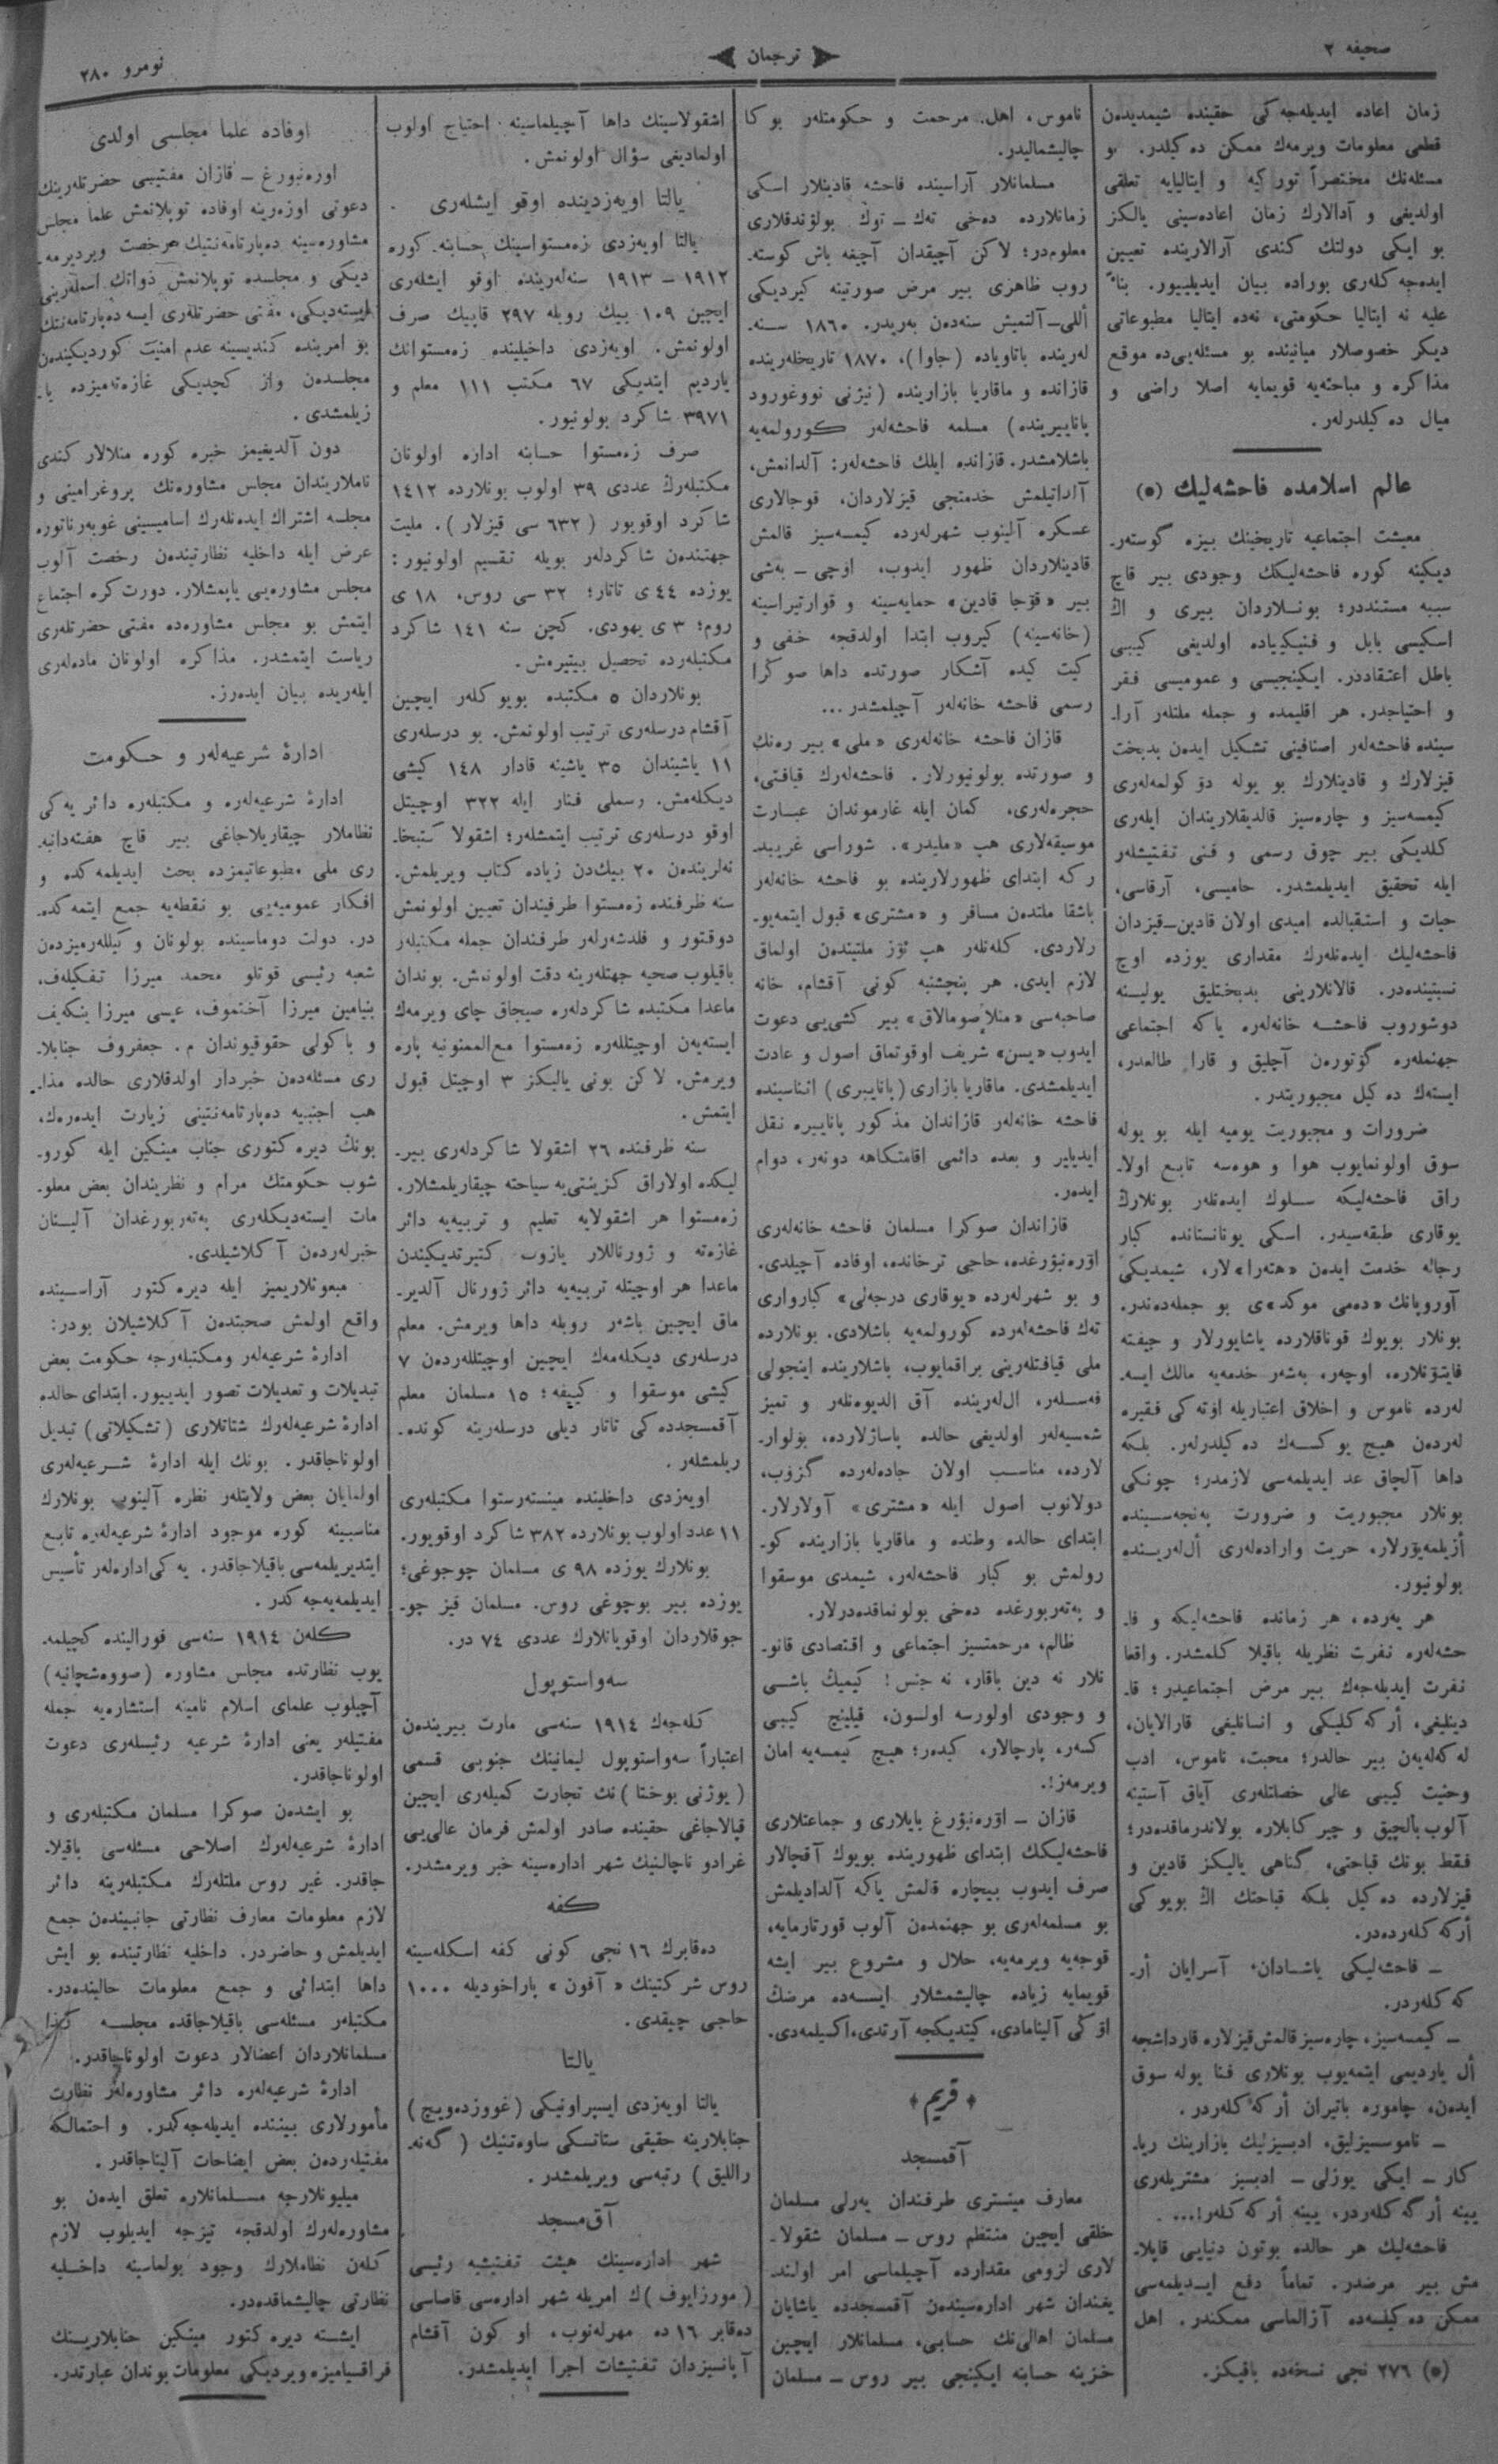 صحیفه ٢
ترجمان
نومرو ٢٨٠
زمان اعاده ایدیله‌جه‌کی حقینده شیمدیدن
قطعی معلومات ویرمه‌ك ممکن ده‌کلدر. بو
مسئله‌نك مختصراً تورکیه و ایتالیایه تعلقی
اولدیغی و آدالارك زمان اعاده‌سینی یالکز
بو ایکی دولتك کندی آرالارینده تعیین
ایده‌جه‌کله‌ری بوراده بیان ایدیلییور. بناءً
علیه نه ایتالیا حکومتی، نه‌ده ایتالیا مطبوعاتی
دیکر خصوصلار میانینده بو مسئله‌یی‌ده موقع
مذاکره و مباحثه‌یه قویمایه اصلا راضی و
میال ده‌کیلدرلر.
عالم اسلامده فاحشه‌لیك (*)
معیشت اجتماعیه تاریخینك بیزه گوسته‌ر-
دیکینه کوره فاحشه‌لیکك وجودی بیر قاچ
سببه مستنددر؛ بونلاردان بیری و اڭ
اسکیسی بابل و فنیکیاده اولدیغی کیبی
باطل اعتقاددر. ایکینجیسی و عمومیسی فقر
و احتیاجدر. هر اقلیمده و جمله ملتلر آرا-
سینده فاحشه‌لر اصنافینی تشکیل ایدن بدبخت
قیزلارك و قادینلارك بو یوله دوکولمه‌له‌ری
کیمسه‌سیز و چاره‌سیز قالدیقلاریندان ایله‌ری
کلدیکی بیر چوق رسمی و فنی تفتیشلر
ایله تحقیق ایدیلمشدر. حامیسی، آرقاسی،
حیات و استقبالده امیدی اولان قادین-قیزدان
فاحشه‌لیك ایده‌نله‌رك مقداری یوزده اوچ
نسبتینده‌در. قالانلارینی بدبختلیق یولینه
دوشوروب فاحشه خانه‌له‌ره یاکه اجتماعی
جهنمله‌ره گؤتوره‌ن آچلیق و قارا طالعدر،
ایستك ده‌کیل مجبوریتدر.
ضرورات و مجبوریت یومیه ایله بو یوله
سوق اولونمایوب هوا و هوسه تابع اولا-
راق فاحشه‌لیکه سلوك ایده‌نلر بونلارڭ
یوقاری طبقه‌سیدر. اسکی یونانستانده کبار
رجاله خدمت ایدن «هته‌را»لار، شیمدیکی
آوروپانك «ده‌می موند»ی بو جمله‌ده‌ندر.
بونلار بویوك قوناقلارده یاشایورلار و جیفته
فایتؤنلاره، اوچر، بشر خدمه‌یه مالك ایسه-
له‌رده ناموس و اخلاق اعتباریله اؤته‌کی فقیره
له‌ردن هیچ یوکسك ده‌کیلدرلر. بلکه
داها آلچاق عد ایدیلمه‌سی لازمدر؛ چونکی
بونلار مجبوریت و ضرورت پنجه‌سینده
أزیلمه‌یؤرلار، حریت و اراده‌له‌ری أل‌له‌رینده
بولونیور.
هر یه‌رده، هر زمانده فاحشه‌لیکه و فا-
حشه‌له‌ره نفرت نظریله باقیلا کلمشدر. واقعا
نفرت ایدیله‌جك بیر مرض اجتماعیدر؛ قا-
دینلیغی، أرکه‌کلیکی و انسانلیغی قارالایان،
له‌که‌له‌ین بیر حالدر؛ محبت، ناموس، ادب
وحیت کیبی عالی خصلتله‌ری آیاق آستینه
آلوب بالچیق و چیرکابلاره بولاندرماقده‌در؛
فقط بونك قباحتی، گناهی یالیکز قادین و
قیزلارده ده‌کیل بلکه قباحتك اڭ بویوکی
أرکه‌کله‌رده‌در.
— فاحشه‌لیکی یاشادان، آسرایان أر-
که‌کلردر.
— کیمسه‌سیز، چاره‌سیز قالمش قیزلاره قارداشجه
أل یاردیمی ایتمه‌یوب بونلاری فنا یوله سوق
ایدن، چاموره باتیران أرکه‌کلردر.
— ناموسسیزلیق، ادبسیزلیك بازارینك ریا-
کار — ایکی یوزلی — ادبسیز مشتریله‌ری
یینه أرکه‌کلردر، یینه أرکه‌کلر!...
فاحشه‌لیك هر حالده بوتون دنیایی قاپلا-
مش بیر مرضدر. تماماً دفع ایدیلمه‌سی
ممکن ده‌کیلسه‌ده آزالماسی ممکندر. اهل
(*) ٢٧٦ نجی نسخه‌ده باقیکز.
ناموس، اهل مرحمت و حکومتلر بوکا
چالیشمالیدر.
مسلمانلار آراسینده فاحشه قادینلار اسکی
زمانلارده ده‌خی تك-توڭ بولؤندقلاری
معلومدر؛ لاکن آچیقدان آچیغه باش کوسته-
روب ظاهری بیر مرض صورتینه کیردیکی
أللی-آلتمیش سنه‌دن به‌ریدر. ١٨٦٠ سنه-
له‌رینده باتاویاده (جاوا)، ١٨٧٠ تاریخله‌رینده
قازانده و ماقاریا بازارینده (نیژنی نووغورود
یاناییرینده) مسلمه فاحشه‌لر کورولمه‌یه
باشلامشدر. قازانده ایلك فاحشه‌لر: آلدانمش،
آلداتیلمش خدمتجی قیزلاردان، قوجالاری
عسکره آلینوب شهرله‌رده کیمسه‌سیز قالمش
قادینلاردان ظهور ایدوب، اوچی-بشی
بیر «قوجا قادین» حمایه‌سینه و قوارتیراسینه
(خانه‌سینه) کیروب ابتدا اولدقجه خفی و
کیت کیده آشکار صورتده داها صوڭرا
رسمی فاحشه خانه‌لر آچیلمشدر...
قازان فاحشه خانه‌له‌ری «ملی» بیر ره‌نك
و صورتده بولونیورلار. فاحشه‌له‌رك قیافتی،
حجره‌له‌ری، کمان ایله غارموندان عبارت
موسیقه‌لاری هپ «ملیدر». شوراسی غریبد-
رکه ابتدای ظهورلارینده بو فاحشه خانه‌لر
باشقا ملتدن مسافر و «مشتری» قبول ایتمه‌یو-
رلاردی. کله‌نلر هپ ئوز ملتیندن اولماق
لازم ایدی. هر پنچشنبه کونی آقشام، خانه
صاحبه‌سی «منلا صومالاق» بیر کشی‌یی دعوت
ایدوب «یسن» شریف اوقوتماق اصول و عادت
ایدیلمشدی. ماقاریا بازاری (یاناییری) اثناسینده
فاحشه خانه‌لر قازاندان مذکور یاناییره نقل
ایدیلیر و بعده دائمی اقامتکاهه دونر، دوام
ایدر.
قازاندان صوکرا مسلمان فاحشه خانه‌له‌ری
اوره‌نبؤرغده، حاجی ترخانده، اوفاده آچیلدی.
و بو شهرله‌رده «یوقاری درجه‌لی» کبارواری
تك فاحشه‌له‌رده کورولمه‌یه باشلادی. بونلارده
ملی قیافتله‌رینی براقمایوب، باشلارینده اینجولی
فه‌سلر، أل‌له‌رینده آق الدیوه‌نلر و تمیز
شمسیه‌لر اولدیغی حالده پاساژلارده، بولوار-
لارده، مناسب اولان جاده‌له‌رده گزوب،
دولانوب اصول ایله «مشتری» آولارلار.
ابتدای حالده وطنده و ماقاریا بازارینده کو-
رولمش بو کبار فاحشه‌لر، شیمدی موسقوا
و په‌ته‌ربورغده ده‌خی بولونماقده‌درلار.
ظالم، مرحمتسیز اجتماعی و اقتصادی قانو-
نلار نه دین باقار، نه جنس! کیمیڭ باشی
و وجودی اولورسه اولسون، قیلینج کیبی
کسر، پارچالار، کیدر؛ هیچ کیمسه‌یه امان
ویرمز!.
قازان — اوره‌نبؤرغ بایلاری و جماعتلاری
فاحشه‌لیکك ابتدای ظهورینده بویوك آقچالار
صرف ایدوب بیچاره قالمش یاکه آلدادیلمش
بو مسلمه‌له‌ری بو جهنمدن آلوب قورتارمایه،
قوجه‌یه ویرمه‌یه، حلال و مشروع بیر ایشه
قویمایه زیاده چالیشمشلار ایسه‌ده مرضڭ
اوڭی آلینامادی، کیتدیکجه آرتدی، اکسیلمه‌دی.
﴿قریم﴾
آقمسجد
معارف مینستری طرفندان یه‌رلی مسلمان
خلقی ایچین منتظم روس — مسلمان شقولا-
لاری لزومی مقدارده آچیلماسی امر اولند-
یغندان شهر اداره‌سیندن آقمسجدده یاشایان
مسلمان اهالی‌نك حسابی، مسلمانلار ایچین
خزینه حسابنه ایکینجی بیر روس — مسلمان
اشقولاسینك داها آچیلماسینه احتیاج اولوب
اولمادیغی سؤال اولونمش.
یالتا اویه‌زدینده اوقو ایشله‌ری
یالتا اویه‌زدی زه‌مستواسینك حسابنه کوره
١٩١٢ – ١٩١٣ سنه‌له‌رینده اوقو ایشله‌ری
ایچین ١٠٩ بیك روبله ٢٩٧ قاپیك صرف
اولونمش. اویه‌زدی داخیلینده زه‌مستوانك
یاردیم ایتدیکی ٦٧ مکتب ١١١ معلم و
٣٩٧١ شاکرد بولونیور.
صرف زه‌مستوا حسابنه اداره اولونان
مکتبله‌رڭ عددی ٣٩ اولوب بونلارده ١٤١٢
شاکرد اوقویور (٦٣٢ سی قیزلار). ملیت
جهتندن شاکردلر بویله تقسیم اولونیور:
یوزده ٤٤ ی تاتار؛ ٣٢ سی روس، ١٨ ی
روم؛ ٣ ی یهودی. کچن سنه ١٤١ شاکرد
مکتبله‌رده تحصیل بیتیرمش.
بونلاردان ٥ مکتبده بویوکلر ایچین
آقشام درسله‌ری ترتیب اولونمش. بو درسله‌ری
١١ یاشیندان ٣٥ یاشینه قادار ١٤٨ کیشی
دیکله‌مش. رسملی فنار ایله ٣٢٢ اوچیتل
اوقو درسله‌ری ترتیب ایتمشلر؛ اشقولا کتبخا-
نه‌لریندن ٢٠ بیك‌دن زیاده کتاب ویریلمش.
سنه ظرفنده زه‌مستوا طرفیندان تعیین اولونمش
دوقتور و فلدشرلر طرفندان جمله مکتبلر
باقیلوب صحیه جهتله‌رینه دقت اولونمش. بوندان
ماعدا مکتبده شاکردله‌ره صیجاق چای ویرمك
ایسته‌ین اوچیتلله‌ره زه‌مستوا مع‌الممنونیه پاره
ویرمش. لاکن بونی یالیکز ٣ اوچیتل قبول
ایتمش.
سنه ظرفنده ٢٦ اشقولا شاکردله‌ری بیر-
لیکده اولاراق کزینتی‌یه سیاحته چیقاریلمشلار.
زه‌مستوا هر اشقولایه تعلیم و تربیه‌یه دائر
غازه‌ته و ژورناللار یازوب کتیرتدیکیندن
ماعدا هر اوچیتله تربیه‌یه دائر ژورنال آلدیر-
ماق ایچین باشه‌ر روبله داها ویرمش. معلم
درسله‌ری دیکله‌مك ایچین اوچیتللردن ٧
کیشی موسقوا و کییفه؛ ١٥ مسلمان معلم
آقمسجدده‌کی تاتار دیلی درسله‌رینه کونده-
ریلمشلر.
اویه‌زدی داخلینده مینسترستوا مکتبله‌ری
١١ عدد اولوب بونلارده ٣٨٢ شاکرد اوقویور.
بونلارك یوزده ٩٨ ی مسلمان چوجوغی؛
یوزده بیر بوچوغی روس. مسلمان قیز چو-
جوقلاردان اوقویانلارك عددی ٧٤ در.
سه‌واستوپول
کله‌جك ١٩١٤ سنه‌سی مارت بیریندن
اعتباراً سه‌واستوپول لیمانینك جنوبی قسمی
(یوژنی بوختا) نك تجارت کمیله‌ری ایچین
قپالاجاغی حقینده صادر اولمش فرمان عالی‌یی
غرادو ناچالنیك شهر اداره‌سینه خبر ویرمشدر.
کفه
ده‌قابرك ١٦ نجی کونی کفه اسکله‌سینه
روس شرکتینك «آفون» پاراخودیله ١٠٠٠
حاجی چیقدی.
یالتا
یالتا اویه‌زدی ایسپراونیکی (غووزده‌ویچ)
جنابلارینه حقیقی ستاتسکی ساوه‌تنیك (گه‌نه-
راللیق) رتبه‌سی ویریلمشدر.
آق‌مسجد
شهر اداره‌سینك هیئت تفتیشیه رئیسی
(مورزایوف)ك امریله شهر اداره‌سی قاصاسی
ده‌قابر ١٦ ده مهرلنوب، او کون آقشام
آپانسیزدان تفتیشات اجرا ایدیلمشدر.
اوفاده علما مجلسی اولدی
اوره‌نبورغ — قازان مفتیسی حضرتله‌رینك
دعوتی اوزه‌رینه اوفاده توپلانمش علما مجلس
مشاوره‌سینه ده‌پارتامه‌نتیك مرخصت ویردیرمه-
دیکی و مجلسده توپلانمش ذواتك اسمله‌رینی
ایسته‌دیکی، مفتی حضرتله‌ری ایسه ده‌پارتامه‌نتك
بو امرینده کندیسینه عدم امنیت کوردیکیندن
مجلسدن واز کچدیکی غازه‌ته‌میزده یا-
زیلمشدی.
دون آلدیغیمز خبره کوره منلالار کندی
ناملاریندان مجلس مشاوره‌نك پروغرامینی و
مجلسه اشتراك ایده‌نله‌رك اسامیسینی غوبه‌رناتوره
عرض ایله داخلیه نظارتیندن رخصت آلوب
مجلس مشاوره‌یی یاپمشلار. دورت کره اجتماع
ایتمش بو مجلس مشاوره‌ده مفتی حضرتله‌ری
ریاست ایتمشدر. مذاکره اولونان ماده‌له‌ری
ایله‌ریده بیان ایده‌رز.
ادارهٔ شرعیه‌لر و حکومت
ادارهٔ شرعیه‌له‌ره و مکتبله‌ره دائر یه‌کی
نظاملار چیقاریلاجاغی بیر قاچ هفته‌دانبه-
ری ملی مطبوعاتیمزده بحث ایدیلمه‌کده و
افکار عمومیه‌یی بو نقطه‌یه جمع ایتمه‌کده-
در. دولت دوماسینده بولونان وکیللەرمیزدن
شعبه رئیسی قوتلو محمد میرزا تفکیلف،
بنیامین میرزا آختموف، عیسی میرزا ینکه‌یف
و باکولی حقوقیوندان م. جعفروف جنابلا-
ری مسئله‌دن خبردار اولدقلاری حالده مذا-
هب اجنبیه ده‌پارتامه‌نتینی زیارت ایده‌رك،
بونك دیره‌کتوری جناب مینکین ایله کورو-
شوب حکومتك مرام و نظریندان بعض معلو-
مات ایسته‌دیکله‌ری په‌ته‌ربورغدان آلینان
خبرله‌ردن آکلاشیلدی.
مبعوثلاریمیز ایله دیره‌کتور آراسینده
واقع اولمش صحبتدن آکلاشیلان بودر:
ادارهٔ شرعیه‌لر ومکتبله‌رجه حکومت بعض
تبدیلات و تعدیلات تصور ایدییور. ابتدای حالده
ادارهٔ شرعیه‌له‌رك شتاتلاری (تشکیلاتی) تبدیل
اولوناجاقدر. بونك ایله ادارهٔ شرعیه‌له‌ری
اولمایان بعض ولایتلر نظره آلینوب بونلارك
مناسبینه کوره موجود ادارهٔ شرعیه‌له‌ره تابع
ایتدیریلمه‌سی باقیلاجاقدر. یه‌کی اداره‌لر تأسیس
ایدیلمه‌یه‌جه‌کدر.
کلن ١٩١٤ سنه‌سی فورالینده کچیلمه-
یوب نظارتده مجلس مشاوره (صووه‌شچانیه)
آچیلوب علمای اسلام نامینه استشاره‌یه جمله
مفتیلر یعنی ادارهٔ شرعیه رئیسله‌ری دعوت
اولوناجاقدر.
بو ایشدن صوکرا مسلمان مکتبله‌ری و
ادارهٔ شرعیه‌له‌رك اصلاحی مسئله‌سی باقیلا-
جاقدر. غیر روس ملتله‌رك مکتبله‌رینه دائر
لازم معلومات معارف نظارتی جانبیندن جمع
ایدیلمش و حاضردر. داخلیه نظارتینده بو ایش
داها ابتدائی و جمع معلومات حالینده‌در.
مکتبلر مسئله‌سی باقیلاجاقده مجلسه کذا
مسلمانلاردان اعضالار دعوت اولوناجاقدر.
ادارهٔ شرعیه‌له‌ره دائر مشاوره‌لر نظارت
مأمورلاری بیننده ایدیله‌جه‌کدر. و احتمالکه
مفتیله‌ردن بعض ایضاحات آلیناجاقدر.
میلیونلارجه مسلمانلاره تعلق ایدن بو
مشاوره‌له‌رك اولدقجه تیزجه ایدیلوب لازم
کلن نظاملارك وجود بولماسینه داخلیه
نظارتی چالیشماقده‌در.
ایشته دیره‌کتور مینکین جنابلارینك
فراقسیامیزه ویردیکی معلومات بوندان عبارتدر.